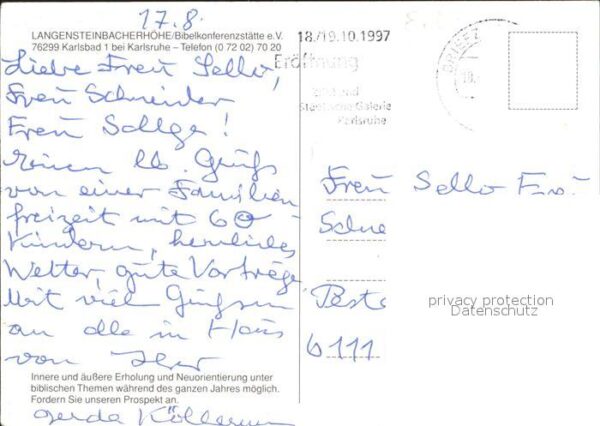 17.8.
LANGENSTEINBACHERHÖHE/Bibelkonferenzstätte e.V.
76299 Karlsbad 1 bei Karlsruhe – Telefon (0 72 02) 70 20
Liebe Frau Sello,
Frau Schneider
Frau Sollge!
Einen lb. Gruß
von einer Familien-
freizeit mit 60
Kindern, herrliches
Wetter, gute Vorträge
Mit viel Grüßen
an alle im Haus
von Ihrer
Innere und äußere Erholung und Neuorientierung unter
biblischen Themen während des ganzen Jahres möglich.
Fordern Sie unseren Prospekt an.
Gerda
18/19.10.1997
Eröffnung
Städtische Galerie
Karlsruhe
Frau Sello
Schne
Post
6111
privacy protection
Datenschutz